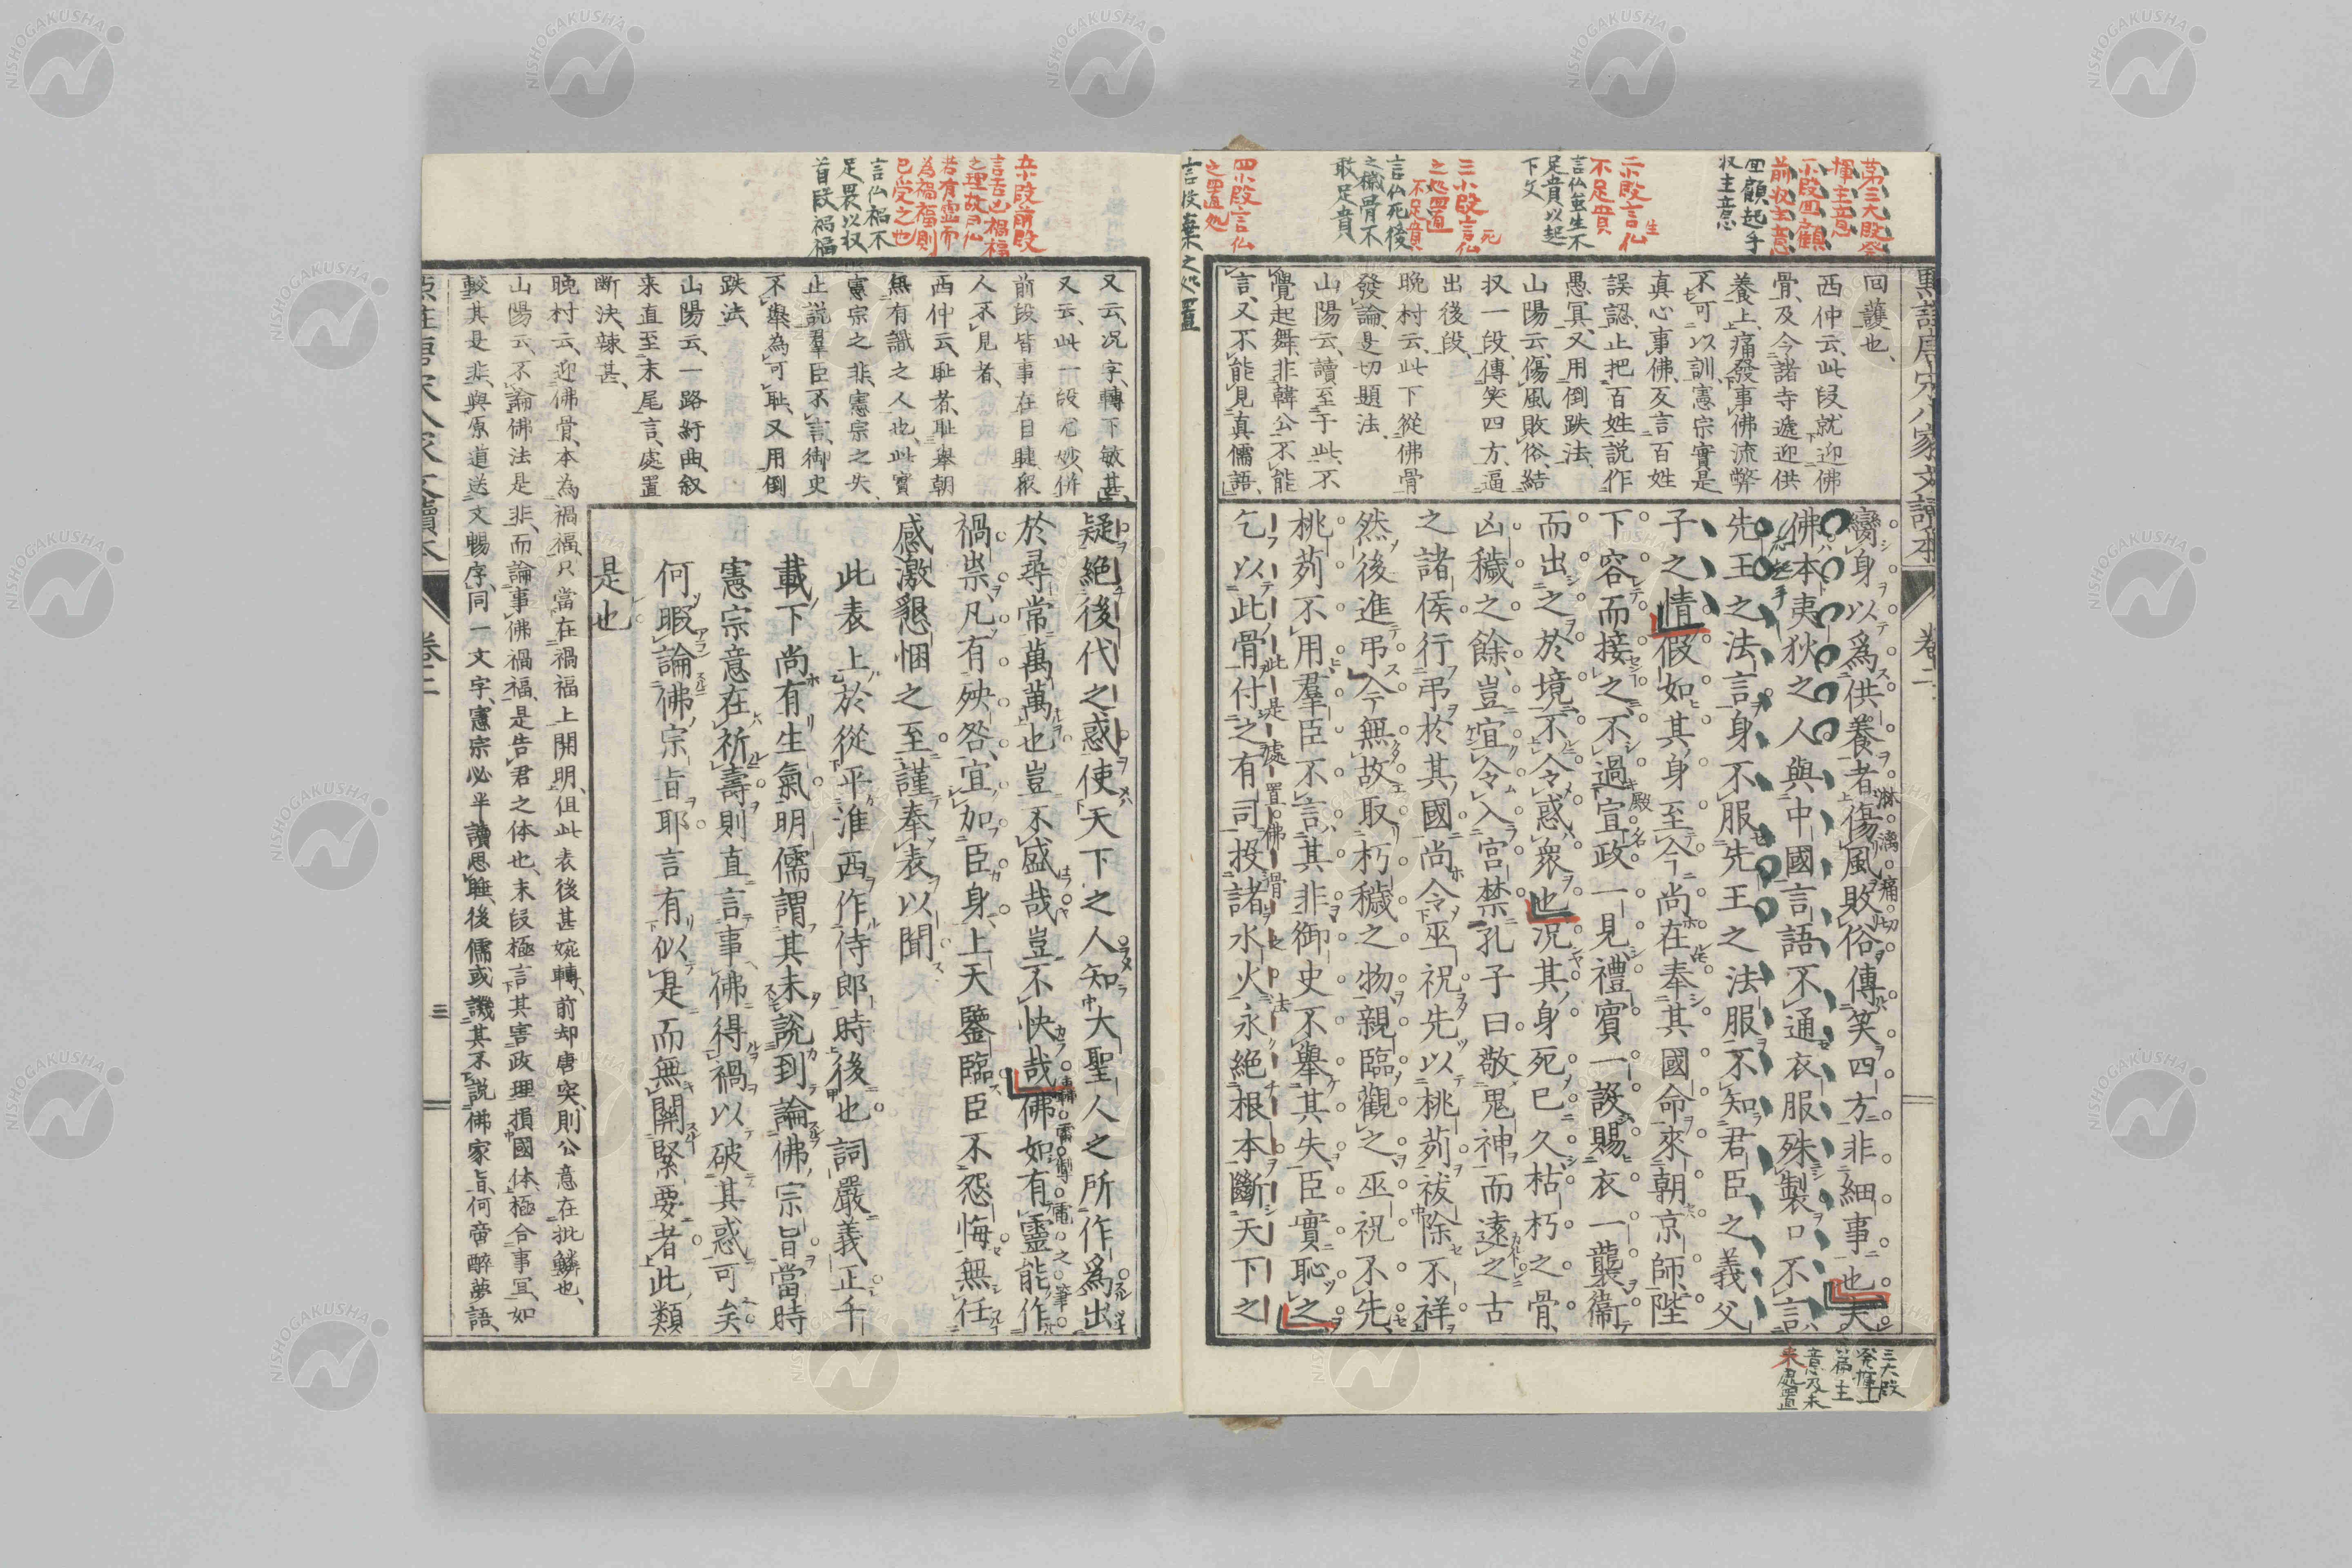 臠身以爲供養者傷風敗俗傳笑四方非細事也夫
佛本夷狄之人與中國言語不通衣服殊製口不言
先王之法言身不服先王之法服不知君臣之義父
子之情假如其身至今尚在奉其國命來朝京師陛
下容而接之不過宣政一見禮賓一設賜衣一襲衞
而出之於境不令惑衆也况其身死已久枯朽之骨
凶穢之餘豈宜令入宮禁孔子曰敬鬼神而遠之古
之諸侯行弔於其國尚令巫祝先以桃茢祓除不祥
然後進弔今無故取朽穢之物親臨觀之巫祝不先
桃茢不用羣臣不言其非御史不舉其失臣實恥之
乞以此骨付之有司投諸水火永絕根本斷天下之
回護也、
西仲云、此段就迎佛
骨、及今諸寺遞迎供
養上、痛發事佛流弊
不可以訓、憲宗實是
真心事佛、反言百姓
誤認、止把百姓説作
愚冥、又用倒跌法、
山陽云、傷風敗俗、結
収一段、傳笑四方、逼
出後段、
晩村云、此下從佛骨
發論、是切題法、
山陽云、讀至于此、不
覺起舞、非韓公不能
言、又不能見真儒語、
第三大段発
揮主意
一小段回顧
前収主意
回顧起手
収主意
二小段言仏生
不足貴
言仏在生不
足貴以起
下文
三小段言仏死
之処置
不足貴
言仏死後
之穢骨不
敢足貴
四小段言仏
之置処
言投棄之処置
淋漓痛切
殿名
此是處置佛骨之法
三大段
発揮一
篇主
意及末
来処置
㸃註唐宋八家文讀本
卷二
疑絕後代之惑使天下之人知大聖人之所作爲出
於尋常萬萬也豈不盛哉豈不快哉佛如有靈能作
禍祟凡有殃咎宜加臣身上天鑒臨臣不怨悔無任
感激懇悃之至謹奉表以聞
此表上於從平淮西作侍郎時後也詞嚴義正千
載下尚有生氣明儒謂其未說到論佛宗旨當時
憲宗意在祈壽則直言事佛得禍以破其惑可矣
何暇論佛宗旨耶言有似是而無關緊要者此類
是也
又云、况字、轉下敏甚、
又云、此一段尤妙、併
前段皆事在目睫、衆
人不見者、
西仲云、耻者、耻舉朝
無有識之人也、此實
憲宗之非、憲宗之失、
止説羣臣不言、御史
不舉、為可耻、又用倒
跌法、
山陽云、一路紆曲、叙
来直至末尾言處置
断決、辣甚、
晩村云、迎佛骨、本為禍福、只當在禍福上開明、但此表後甚婉轉、前却唐突、則公意在批鱗也、
山陽云、不論佛法是非、而論事佛禍福、是告君之体也、末段極言其害政理損國体、極合事冝、如
較其是非、與原道送文暢序、同一文字、憲宗必半讀思睡、後儒或譏其不説佛家旨、何啻醉夢語、
五小段前段
言吉凶禍福
之理故為仏
若有霊而
為禍福則
己受之也
言仏禍不
足畏以収
首段禍福
轟雷掣電之筆
㸃註唐宋八家文讀本
卷二
三